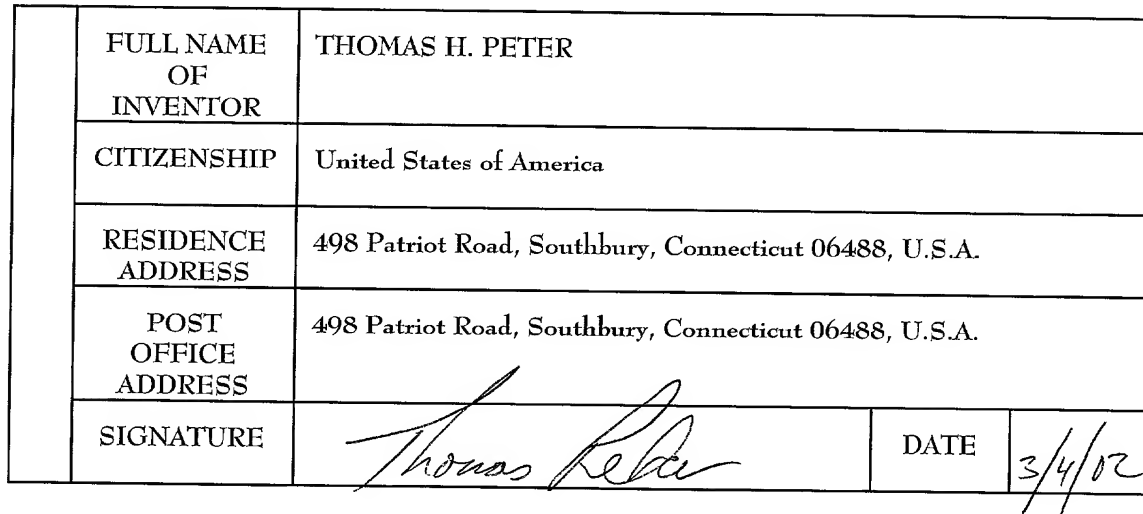 FULL NAME
OF
INVENTOR
THOMAS H. PETER
CITIZENSHIP
United States of America
RESIDENCE
ADDRESS
498 Patriot Road, Southbury, Connecticut 06488, U.S.A.
POST
OFFICE
ADDRESS
498 Patriot Road, Southbury, Connecticut 06488, U.S.A.
SIGNATURE
Thomas Peter
DATE
3/4/02